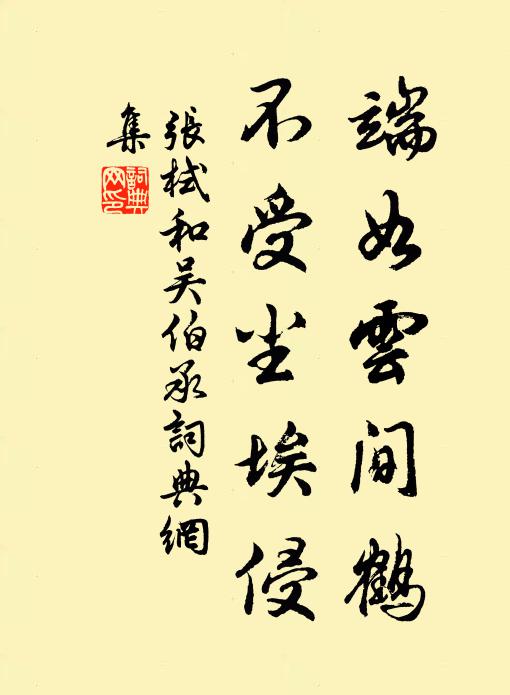 端如雲间鶴
不受尘埃侵
張栻和吴伯承詞典網
集
詞典
网印